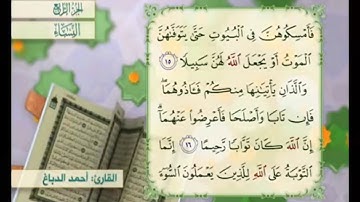 الجزء الرابع
النساء
فَأَمْسِكُوهُنَّ فِي الْبُيُوتِ حَتَّىٰ يَتَوَفَّاهُنَّ
الْمَوْتُ أَوْ يَجْعَلَ اللَّهُ لَهُنَّ سَبِيلًا ١٥
وَاللَّذَانِ يَأْتِيَانِهَا مِنكُمْ فَآذُوهُمَا ۖ
فَإِن تَابَا وَأَصْلَحَا فَأَعْرِضُوا عَنْهُمَا ۗ
إِنَّ اللَّهَ كَانَ تَوَّابًا رَّحِيمًا ١٦ إِنَّمَا
التَّوْبَةُ عَلَى اللَّهِ لِلَّذِينَ يَعْمَلُونَ السُّوءَ
القارئ: أحمد الدباغ